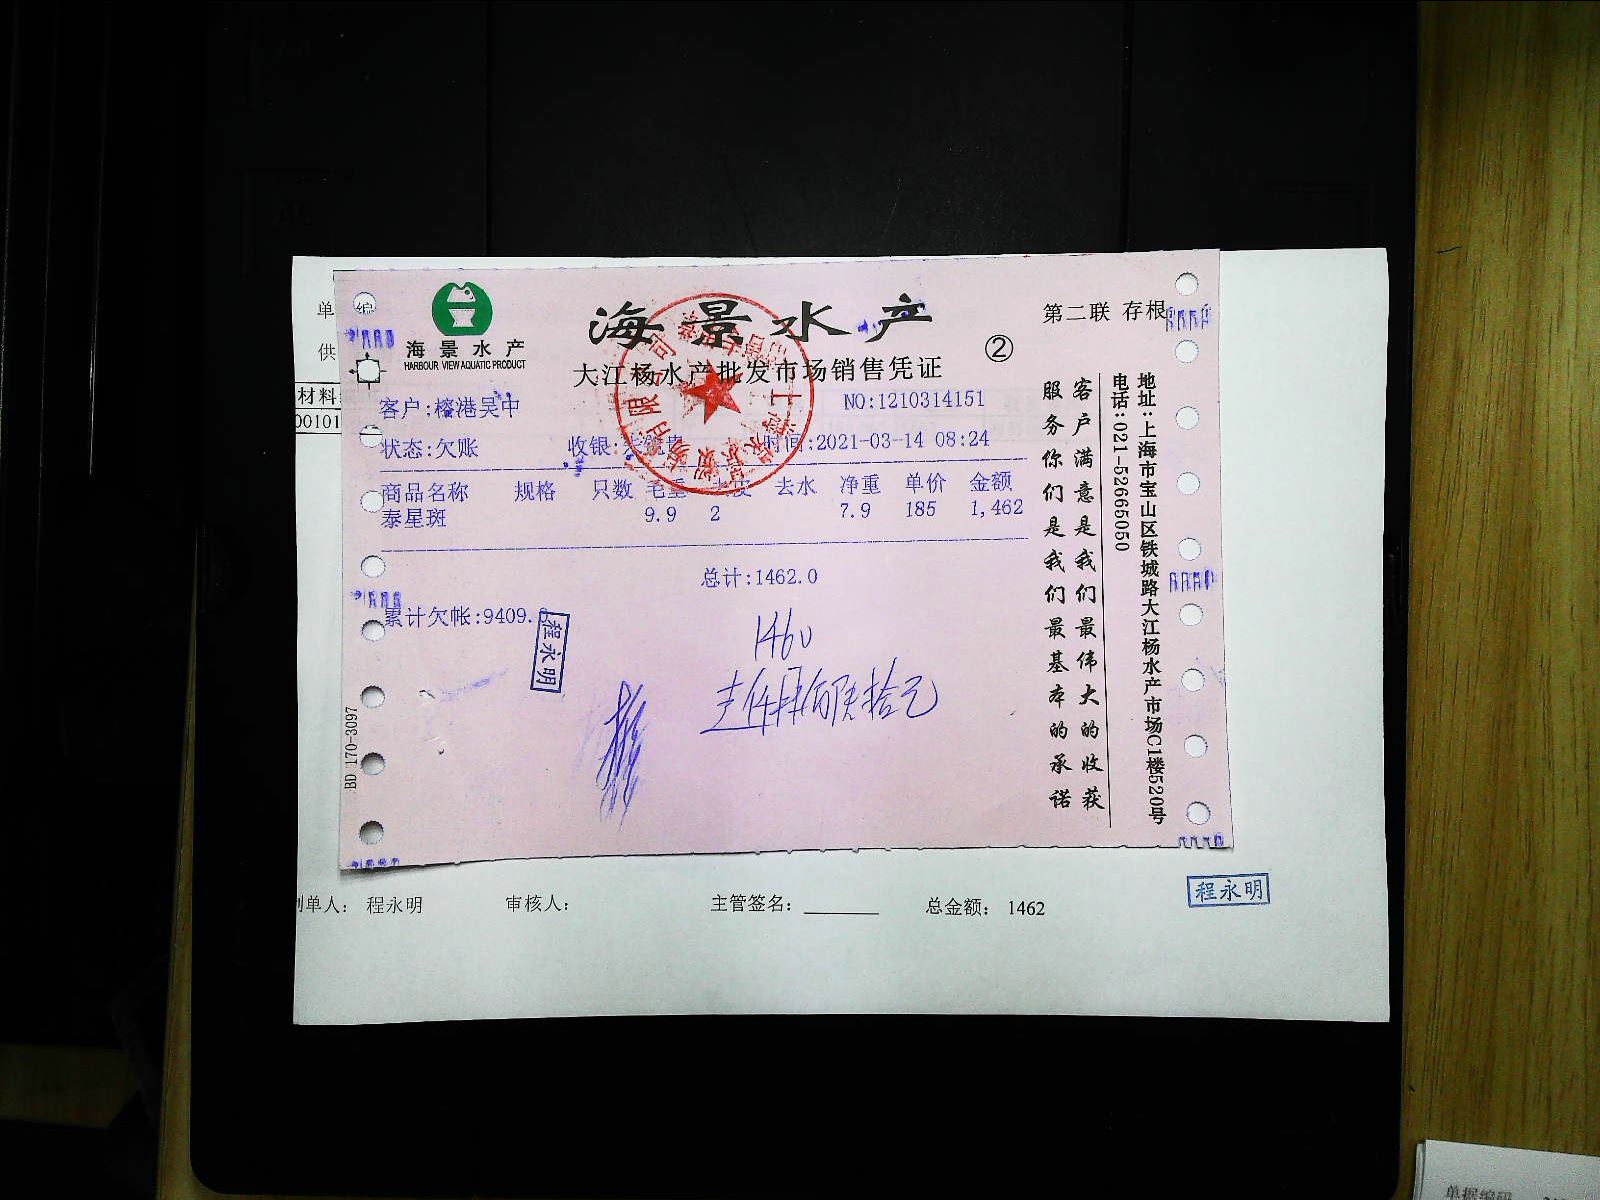 海景水产
HARBOUR VIEW AQUATIC PRODUCT
海景水产
大江杨水产批发市场销售凭证
②
第二联 存根
客户:榕港吴中
NO:1210314151
状态:欠账
收银:
时间:2021-03-14 08:24
商品名称 规格 只数 毛重 去皮 去水 净重 单价 金额
泰星斑 9.9 2 7.9 185 1,462
总计:1462.0
累计欠帐:9409.
程永明
1460
BD 170-3097
客户满意是我们最伟大的收获
服务你们是我们最基本的承诺
地址:上海市宝山区铁城路大江杨水产市场C1楼520号
电话:021-52665050
单 编
供
材料
00101
制单人: 程永明
审核人:
主管签名:
总金额: 1462
程永明
单据编码